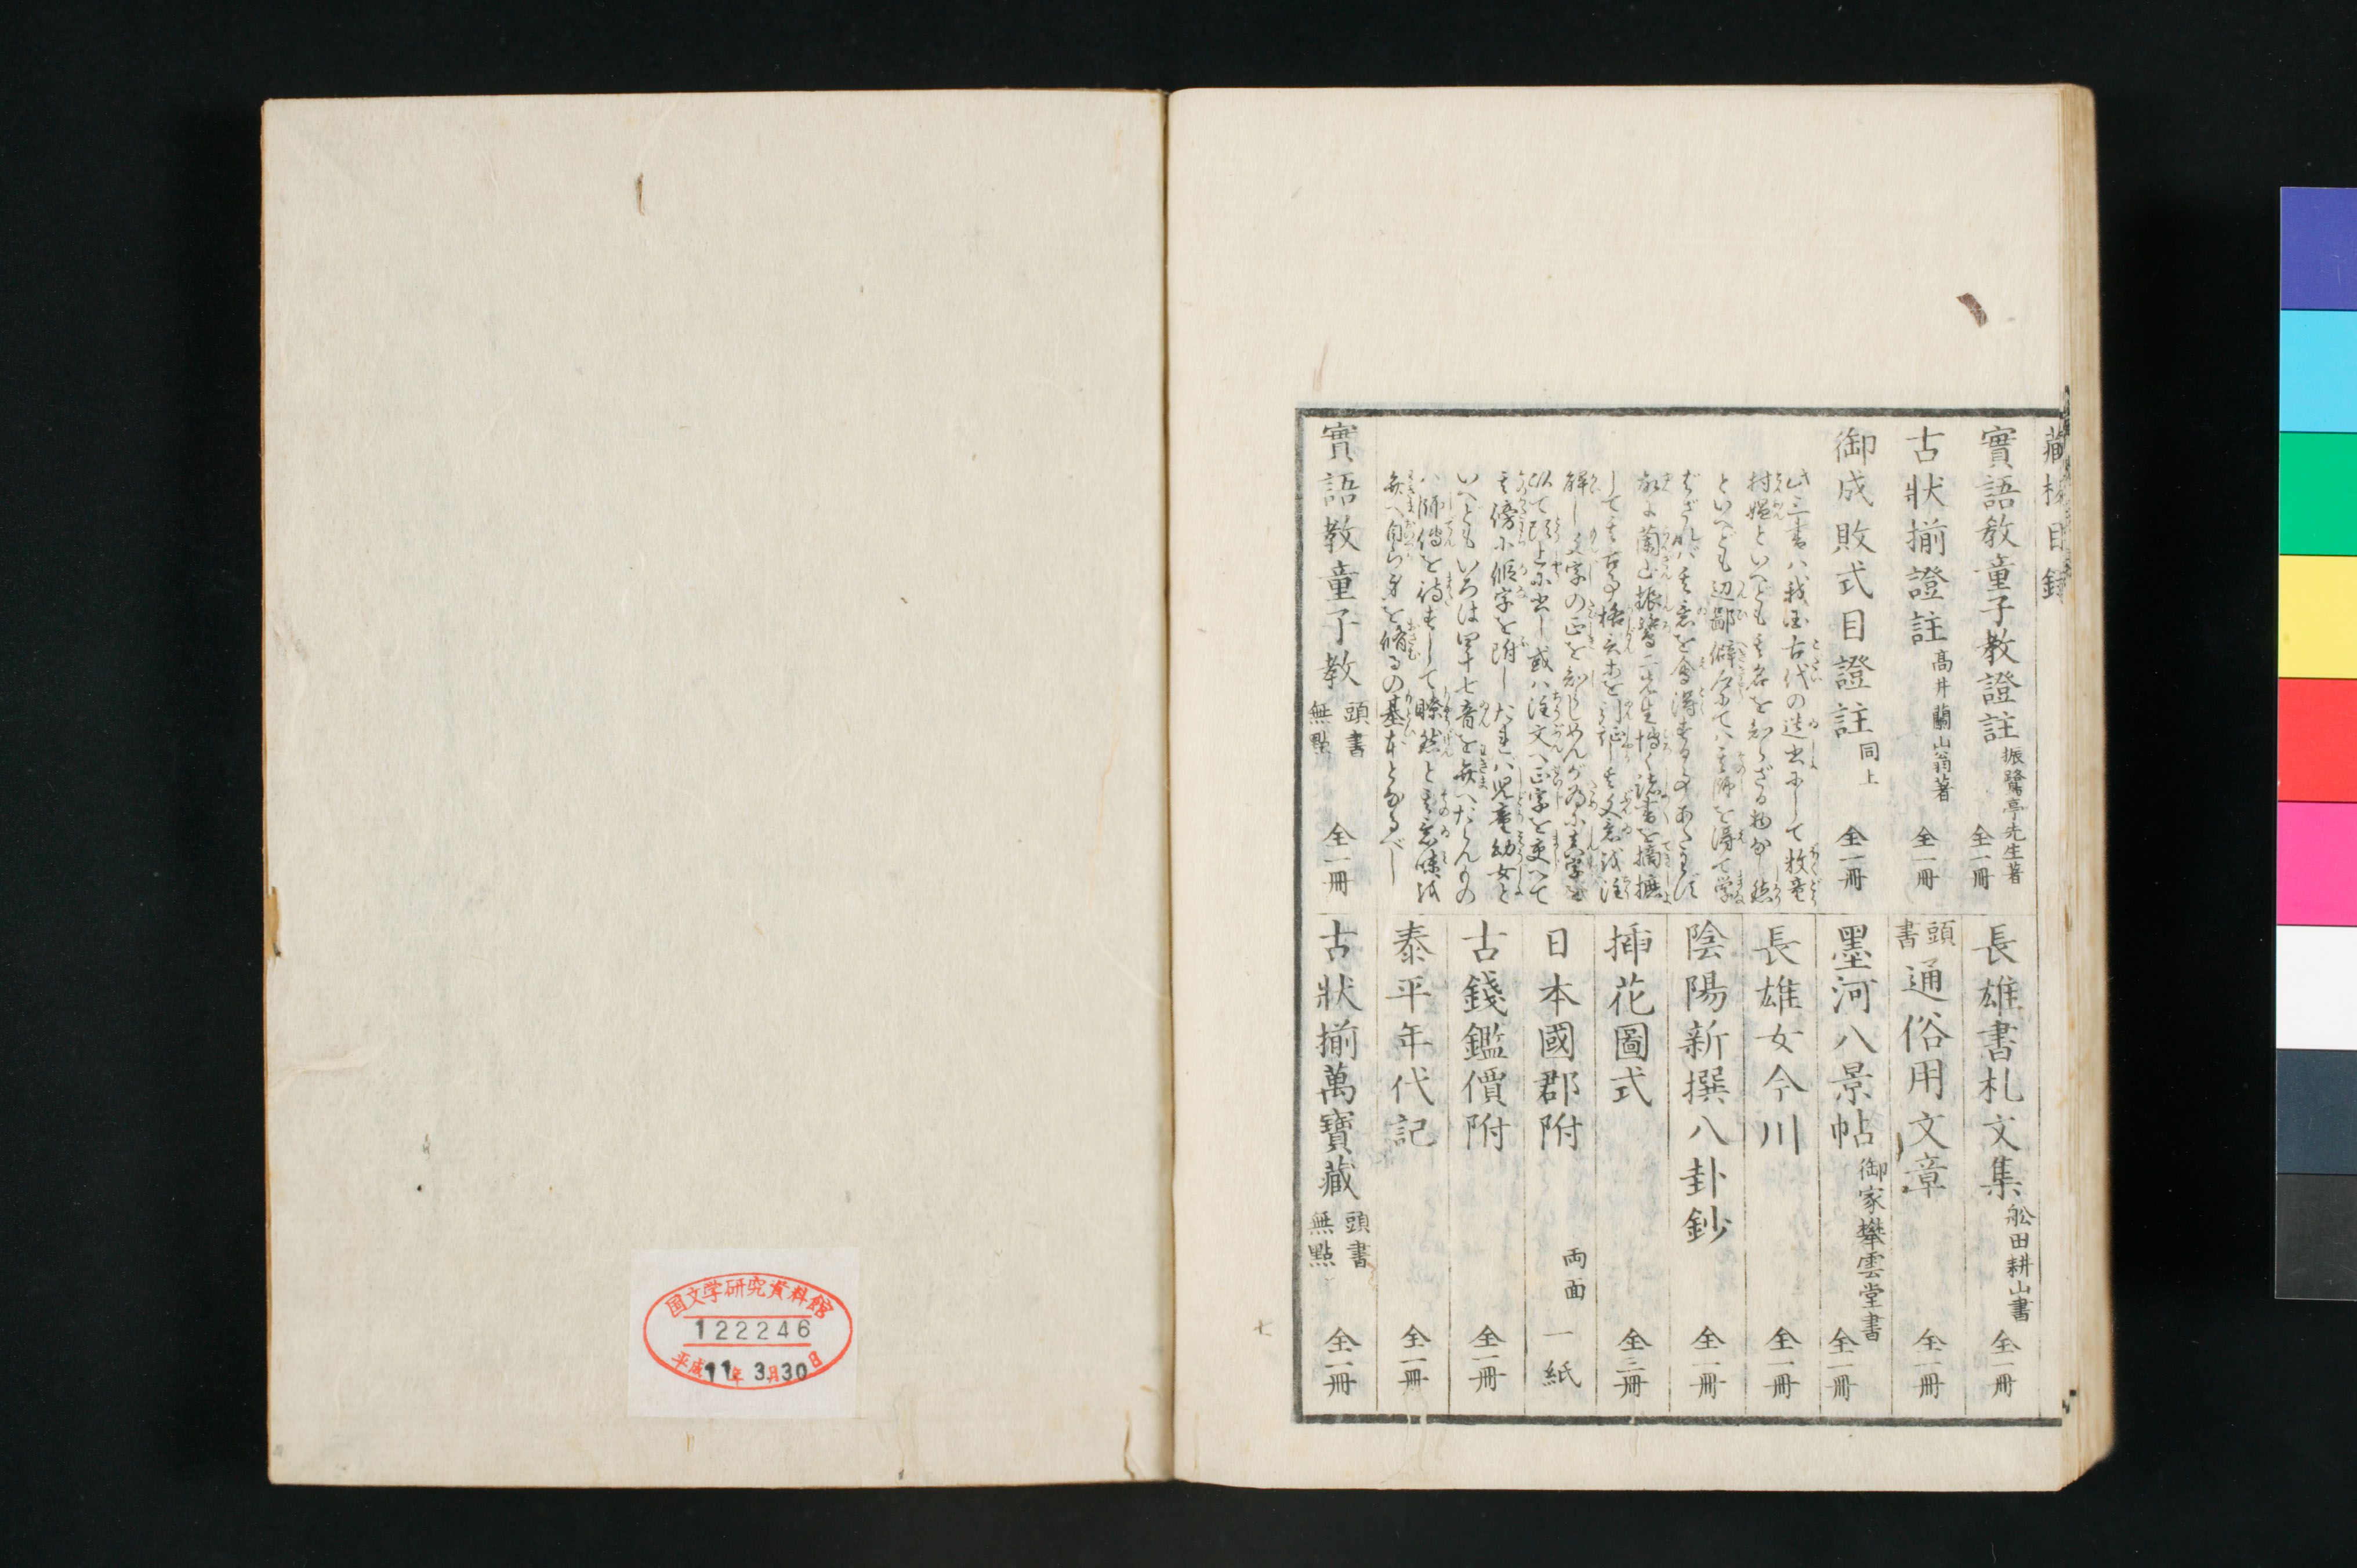 藏板目録
實語教童子教證註 振鷺亭先生著 全一冊
古狀揃證註 高井蘭山翁著 全一冊
御成敗式目證註 同上 全一冊
此三書ハ我国古代の遺書にして牧童
村嫗といへども其名を知らざる物なし然
といへども辺鄙僻邑にてハ其師を得て学
ばざれバ其意を会得する事あたはず
故に蘭山振鷺二先生博く諸書を摘摭
して其古事格言を引証し其文意を注
解し文字の正を知らしめんが為に真字を
以て頭上に出し或ハ注文へ正字を更へて
其傍に仮字を附したれバ児童幼女と
いへどもいろは四十七音を弁へたらんもの
ハ師伝を待ずして瞭然と其意味を
弁へ自ら身を脩るの基本となるべし
實語教童子教 頭書無點 全一冊
長雄書札文集 舩田耕山書 全一冊
頭書通俗用文章 全一冊
墨河八景帖 御家攀雲堂書 全一冊
長雄女今川 全一冊
陰陽新撰八卦鈔 全一冊
挿花圖式 全三冊
日本國郡附 両面 一紙
古錢鑑價附 全一冊
泰平年代記 全一冊
古狀揃萬寶藏 頭書無點 全一冊
七
国文学研究資料館
122246
平成11年3月30日